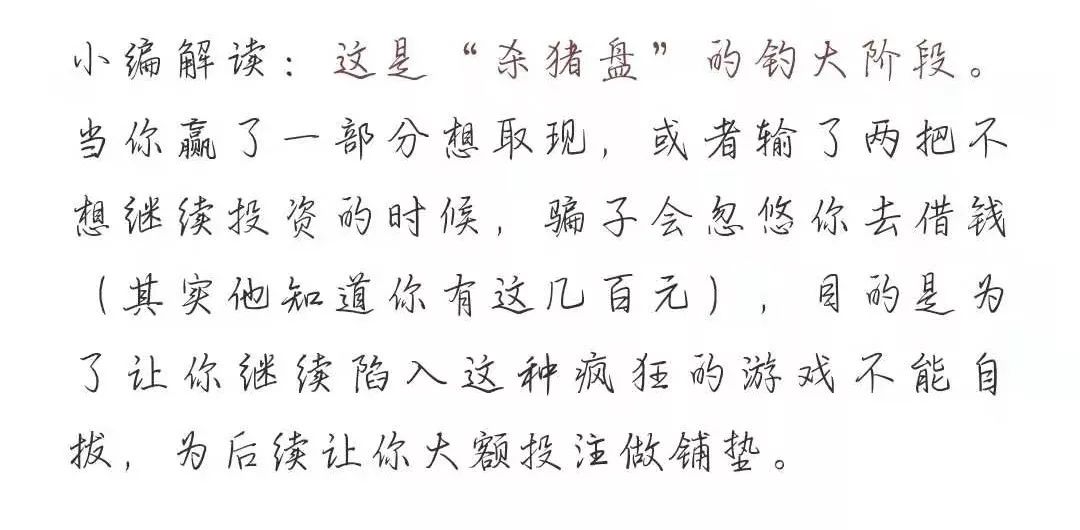 小编解读：这是“杀猪盘”的钓大阶段。
当你赢了一部分想取现，或者输了两把不
想继续投资的时候，骗子会忽悠你去借钱
（其实他知道你有这几百元），目的是为
了让你继续陷入这种疯狂的游戏不能自
拔，为后续让你大额投注做铺垫。